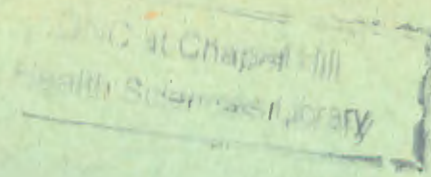 UNC at Chapel Hill
Health Sciences Library